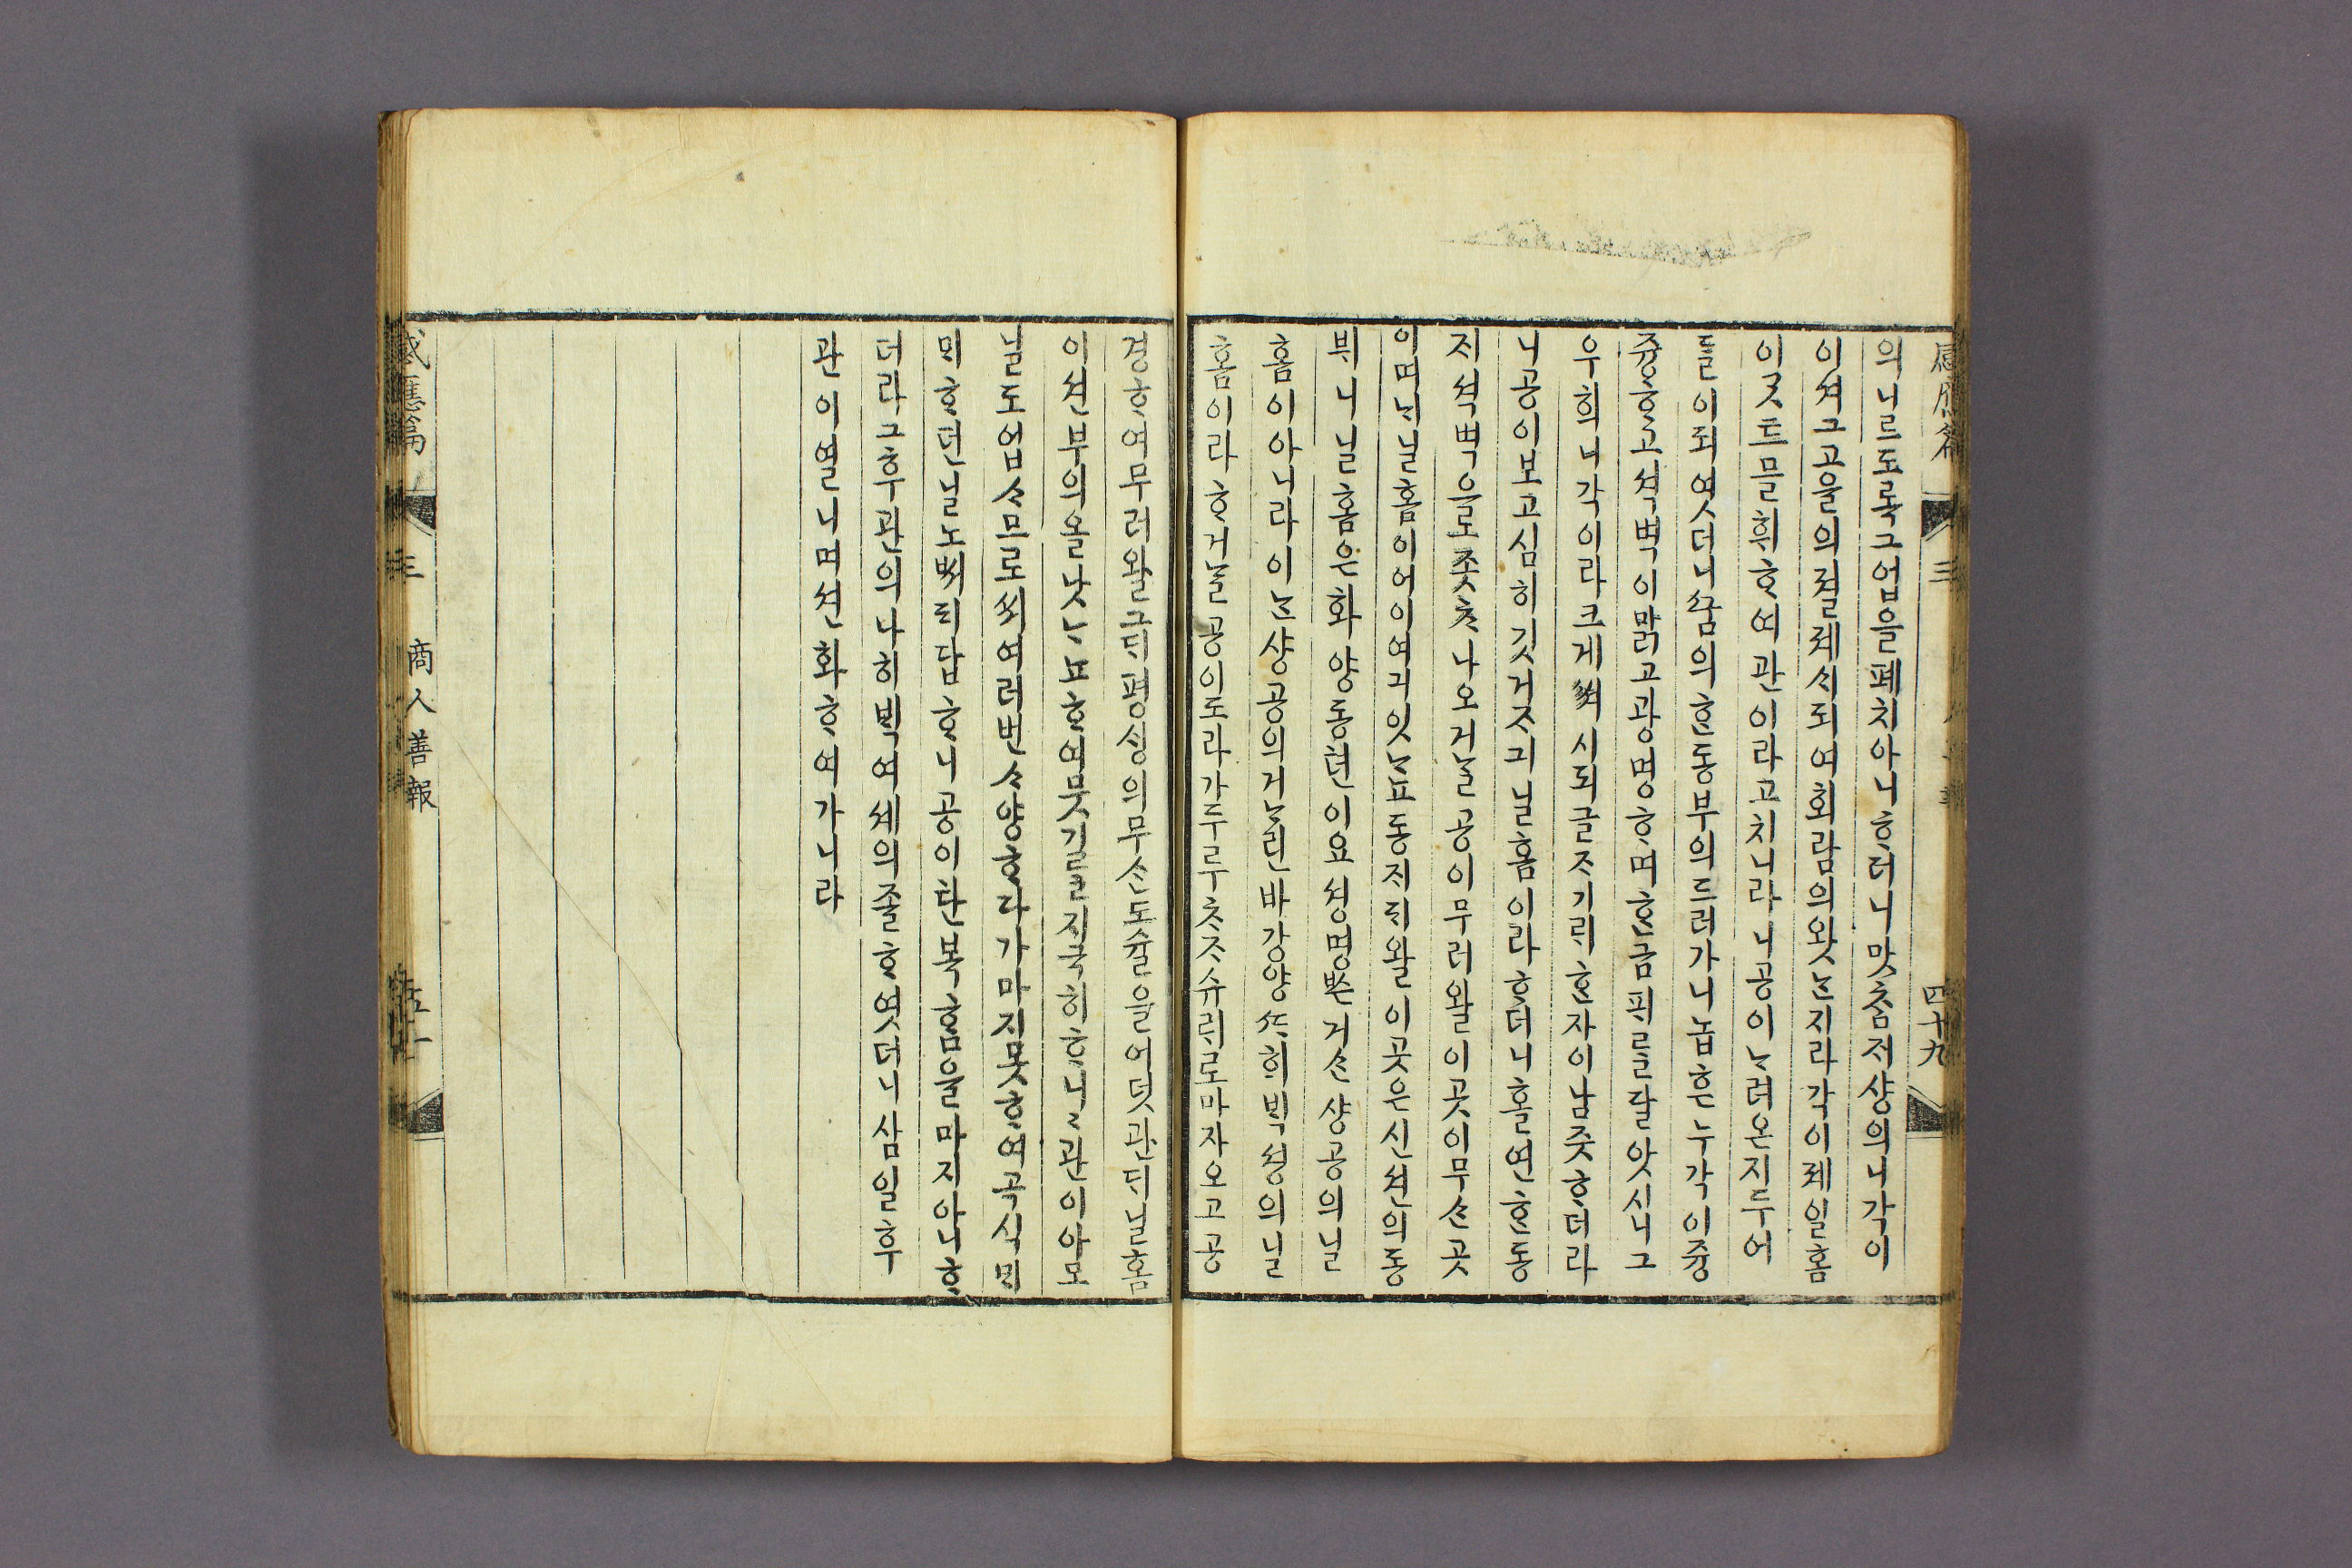 感應篇 三 四十九
의니르도록그업을폐치아니ᄒᆞ더니맛ᄎᆞᆷ저샹의니각이
이셔그고을의졀졔ᄉᆡ되여회람의왓ᄂᆞᆫ지라각이졔일홈
이ᄀᆞᆺ트믈휘ᄒᆞ여관이라고치니라니공이ᄂᆞ려온지두어
ᄃᆞᆯ이되엿더니ᄭᅮᆷ의ᄒᆞᆫ동부의드러가니놉흔누각이즁
즁ᄒᆞ고셕벽이ᄆᆞᆰ고광명ᄒᆞ며ᄒᆞᆫ금패ᄅᆞᆯ달앗시니그
우희니각이라크게ᄡᅥ시되글ᄌᆞ기ᄅᆡᄒᆞᆫ자이남즛ᄒᆞ더라
니공이보고심히깃거ᄌᆞ긔닐홈이라ᄒᆞ더니홀연ᄒᆞᆫ동
ᄌᆡ셕벽을좃ᄎᆞ나오거ᄂᆞᆯ공이무러왈이곳이무ᄉᆞᆫ곳
이며ᄂᆡ닐홈이어이여긔잇ᄂᆞ뇨동ᄌᆡᄃᆡ왈이곳은신션의동
뷔니닐홈은화양동텬이요셩명ᄡᅳᆫ거ᄉᆞᆫ샹공의닐
홈이아니라이ᄂᆞᆫ샹공의거ᄂᆞ린바강양ᄯᅡ희ᄇᆡᆨ셩의닐
홈이라ᄒᆞ거ᄂᆞᆯ공이도라가두루ᄎᆞᄌᆞ슈ᄅᆡ로마자오고공
경ᄒᆞ여무러왈그ᄃᆡ평ᄉᆡᆼ의무ᄉᆞᆫ도슐을어덧관ᄃᆡ닐홈
이션부의올낫ᄂᆞ뇨ᄒᆞ여뭇기ᄅᆞᆯ지극히ᄒᆞ니〻관이아모
닐도업ᄉᆞ므로ᄡᅥ여러번ᄉᆞ양ᄒᆞ다가마지못ᄒᆞ여곡식ᄆᆡ
ᄆᆡᄒᆞ던닐노ᄡᅥᄃᆡ답ᄒᆞ니공이탄복ᄒᆞᆷ을마지아니ᄒᆞ
더라그후관의나히ᄇᆡᆨ여셰의졸ᄒᆞ엿더니삼일후
관이열니며션화ᄒᆞ여가니라
感應篇 三 商人善報